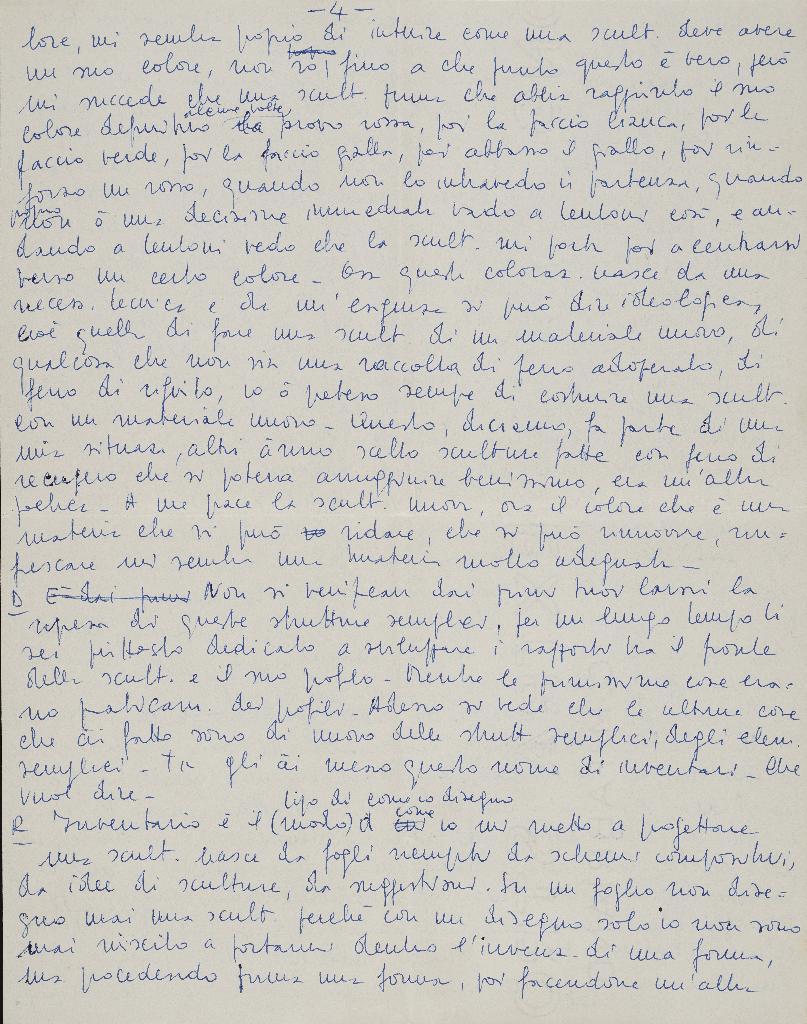 - 4 -
lore, mi sembra proprio di intuire come una scult. deve avere
un suo colore, non so, fino a che punto questo è vero, però
mi succede che una scult. prima che abbia raggiunto il suo
alcune volte
colore definitivo la provo rossa, poi la faccio bianca, poi la
faccio verde, poi la faccio gialla, poi abbasso il giallo, poi rin-
forzo un rosso, quando non lo intravedo in partenza, quando
proprio
non ò una decisione immediata vado a tentoni così, e an-
dando a tentoni vedo che la scult. mi porta poi a centrarsi
verso un certo colore - Ora questa coloraz. nasce da una
necess. tecnica e da un'esigenza si può dire ideologica,
cioè quella di fare una scult. di un materiale nuovo, di
qualcosa che non sia una raccolta di ferro adoperato, di
ferro di rifiuto, io ò preteso sempre di costruire una scult.
con un materiale nuovo - Questo, diciamo, fa parte di una
mia situaz., altri ànno scelto sculture fatte con ferro di
recupero che si poteva arrugginire benissimo, era un'altra
poetica - A me piace la scult. nuova, ora il colore che è una
materia che si può ridare, che si può rinnovare, rin-
frescare mi sembra una materia molto adeguata -
D E dai primi Non si verifican dai primi tuoi lavori la
ripresa di queste strutture semplici, per un lungo tempo ti
sei piuttosto dedicato a sviluppare i rapporti tra il fronte
della scult. e il suo profilo - Mentre le primissime cose era-
no praticam. dei profili - Adesso si vede che le ultime cose
che ài fatto sono di nuovo delle strutt. semplici, degli elem.
semplici - Tu gli ài messo questo nome di inventari - Che
vuol dire -
tipo di come io disegno
R Inventario è il (modo) d come io mi metto a progettare
una scult. nasce da fogli riempiti da schemi compositivi,
da idee di sculture, da suggestioni. In un foglio non dise-
gno mai una scult. perché con un disegno solo io non sono
mai riuscito a portarmi dentro l'invenz. di una forma,
ma procedendo prima una forma, poi facendone un'altra